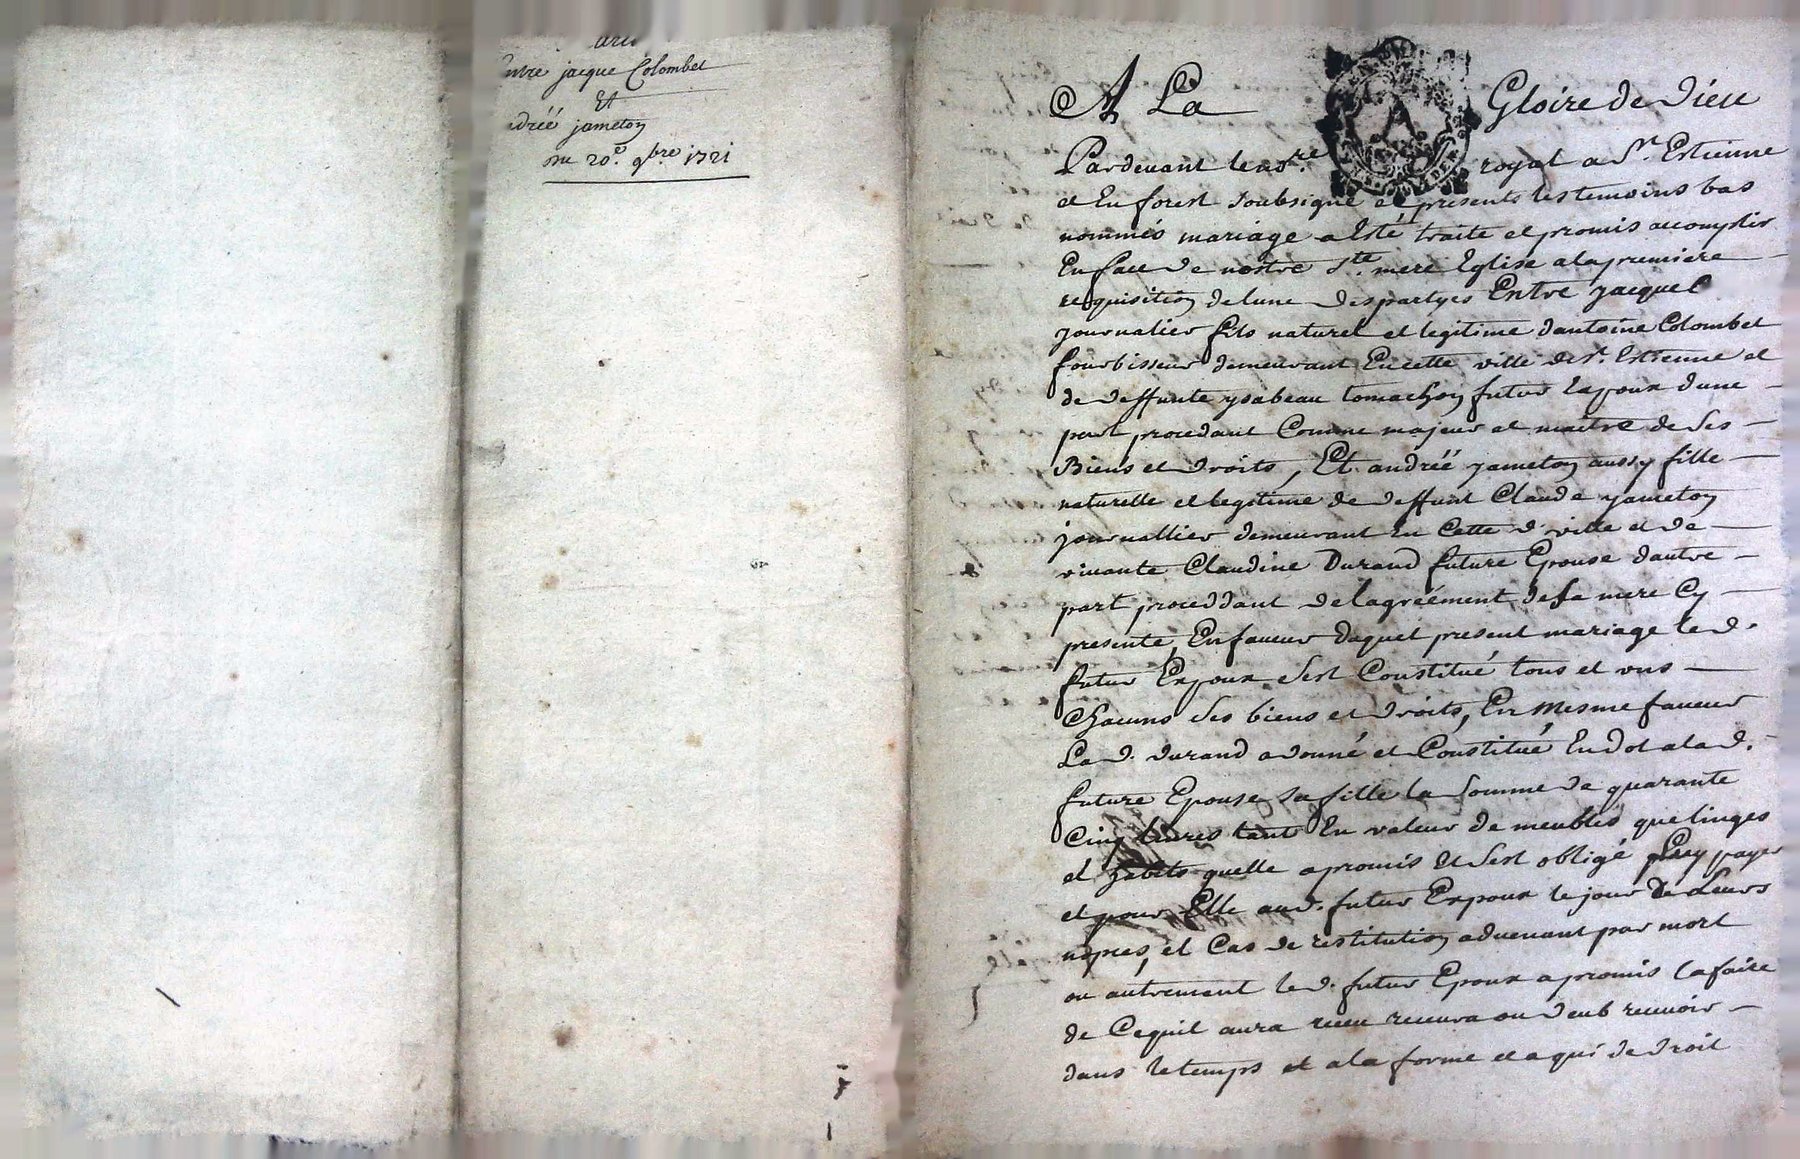 entre jacque Colombet
Et
andréé jameton
du 20.e 9bre 1721
A La Gloire de Dieu
Pardevant le no.re royal a St. Estienne
et En forest soubsigné et presents les temoins bas
nommés mariage a Esté traité et promis accomplir
En face de nostre Ste. mere Eglise a la premiere
requisition de lune des partyes Entre jacque C
journalier fils naturel et legitime dantoine Colombet
fourbisseur demeurant En cette ville de St. Estienne et
de deffunte ysabeau tomachon futur Espoux dune
part procedant Comme majeur et maitre de ses
Biens et droits, Et andréé jameton aussy fille
naturelle et legitime de deffunt Claude jameton
journallier demeurant En Cette d. ville et de
vivante Claudine Durand future Epouse dautre
part proceddant de lagréément de sa mere Cy
presente, En faveur duquel present mariage le d.
futur Expoux sest Constitué tous et uns
Chacuns ses biens et droits, En mesme faveur
La d. durand a donné et Constitué En dot a la d.
future Epouse sa fille la somme de quarante
Cinq livres tant En valeur de meubles que linges
et habits quelle a promis Et sest obligé payer
et pour Elle au d. futur Expoux le jour de Leurs
nopces, et Cas de restitution advenant par mort
ou autrement le d. futur Epoux a promis la faire
de Cequil aura receu recevra ou deub recevoir
dans le temps et a la forme et a qui de droit